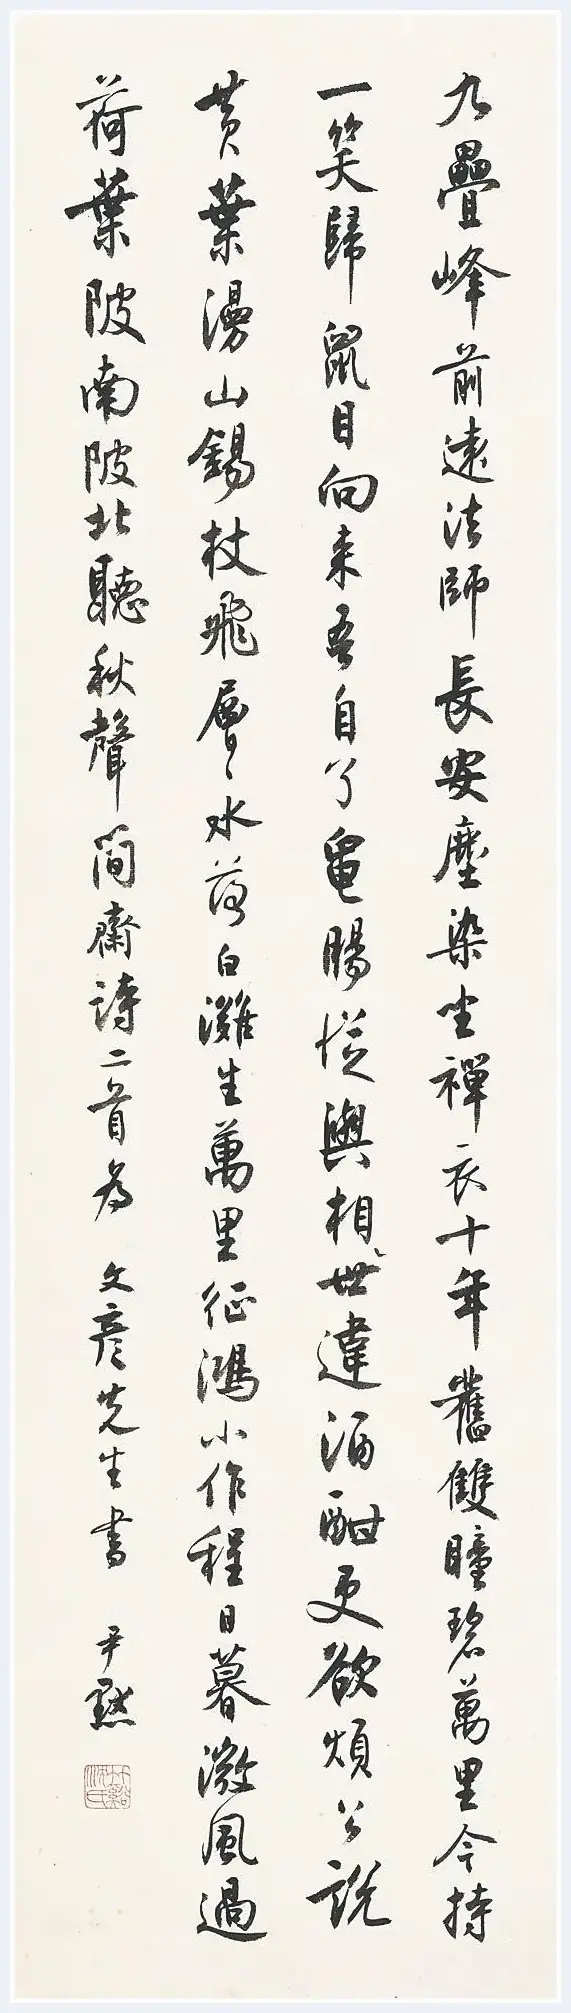 九疊峰前遠法師長安塵染坐禪衣十年舊雙瞳碧萬里今持
一笑歸鼠目向来吾自了龜腸從與相世違酒酣更欲煩公說
黄葉漫山錫杖飛層〻水落白灘生萬里征鴻小作程日暮微風過
荷葉陂南陂北聽秋聲簡齋詩二首為 文彦先生書 尹默
竹谿沈氏